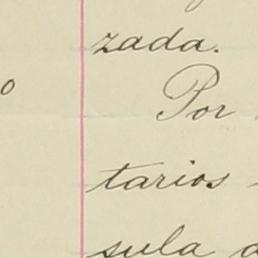 zada.
Por
tarios
sula